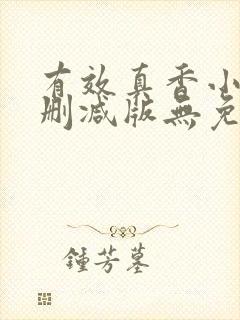 有效真香小
删减版無免
鍾芳墓